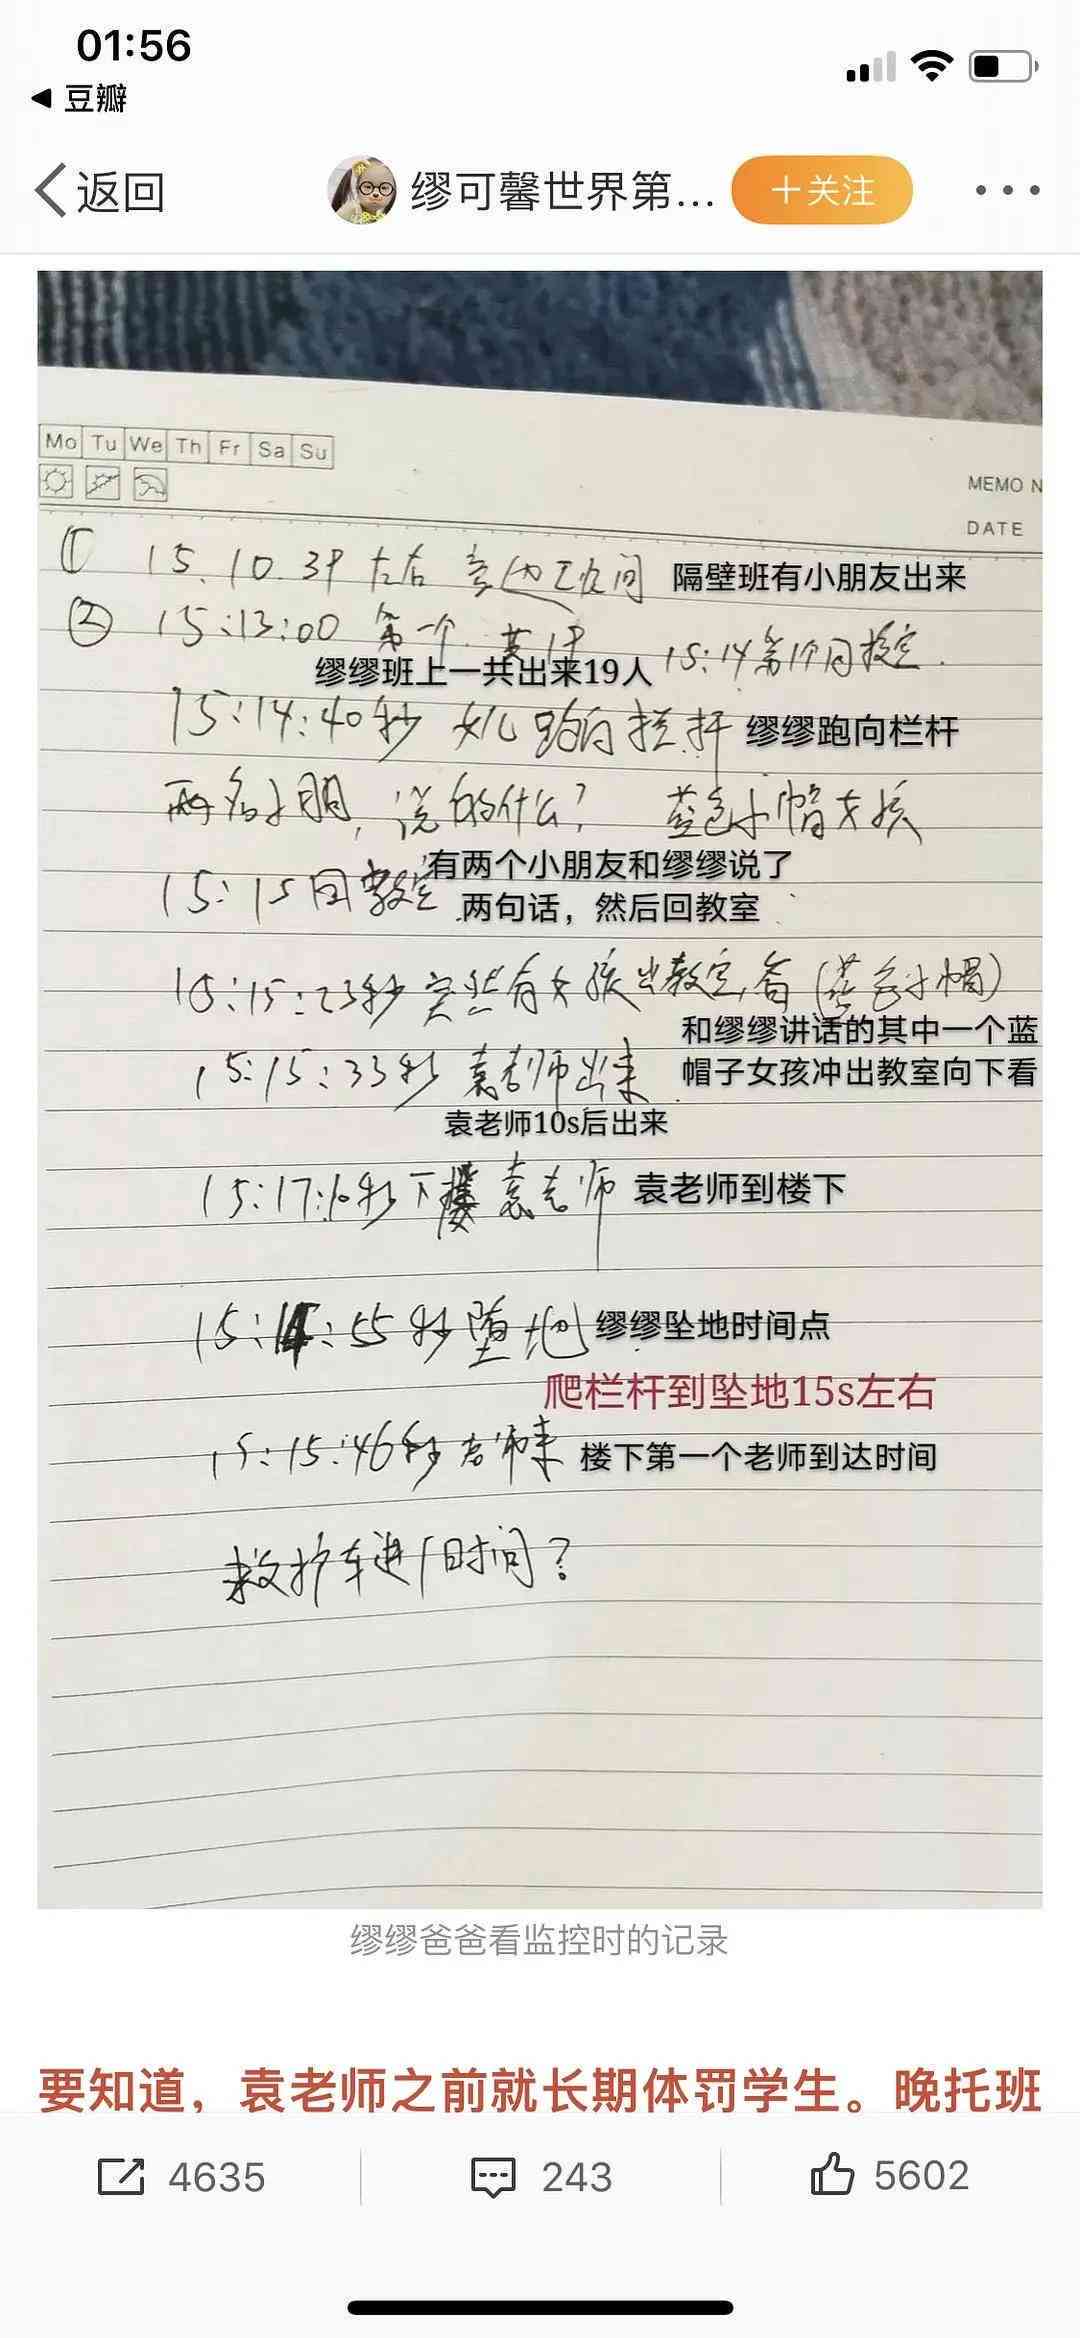 01:56
豆瓣
返回
缪可馨世界第...
+关注
Mo Tu We Th Fr Sa Su
MEMO N
DATE
① 15.10.39 左右 旁边卫生间 隔壁班有小朋友出来
② 15:13:00 第一个 15:14 第1个回教室.
缪缪班上一共出来19人
15:14:40秒 女儿跑向拦杆 缪缪跑向栏杆
两名小朋, 说的什么? 蓝色小帽女孩
有两个小朋友和缪缪说了
15:15回教室 两句话，然后回教室
15:15:23秒突然有女孩出教室,看(蓝色小帽)
和缪缪讲话的其中一个蓝
15:15:33秒 袁老师出来 帽子女孩冲出教室向下看
袁老师10s后出来
15:17:10秒下楼 袁老师 袁老师到楼下
15:14:55秒堕地 缪缪坠地时间点
爬栏杆到坠地15s左右
15:15:46秒老师来 楼下第一个老师到达时间
救护车进门时间?
缪缪爸爸看监控时的记录
要知道，袁老师之前就长期体罚学生。晚托班
4635
243
5602